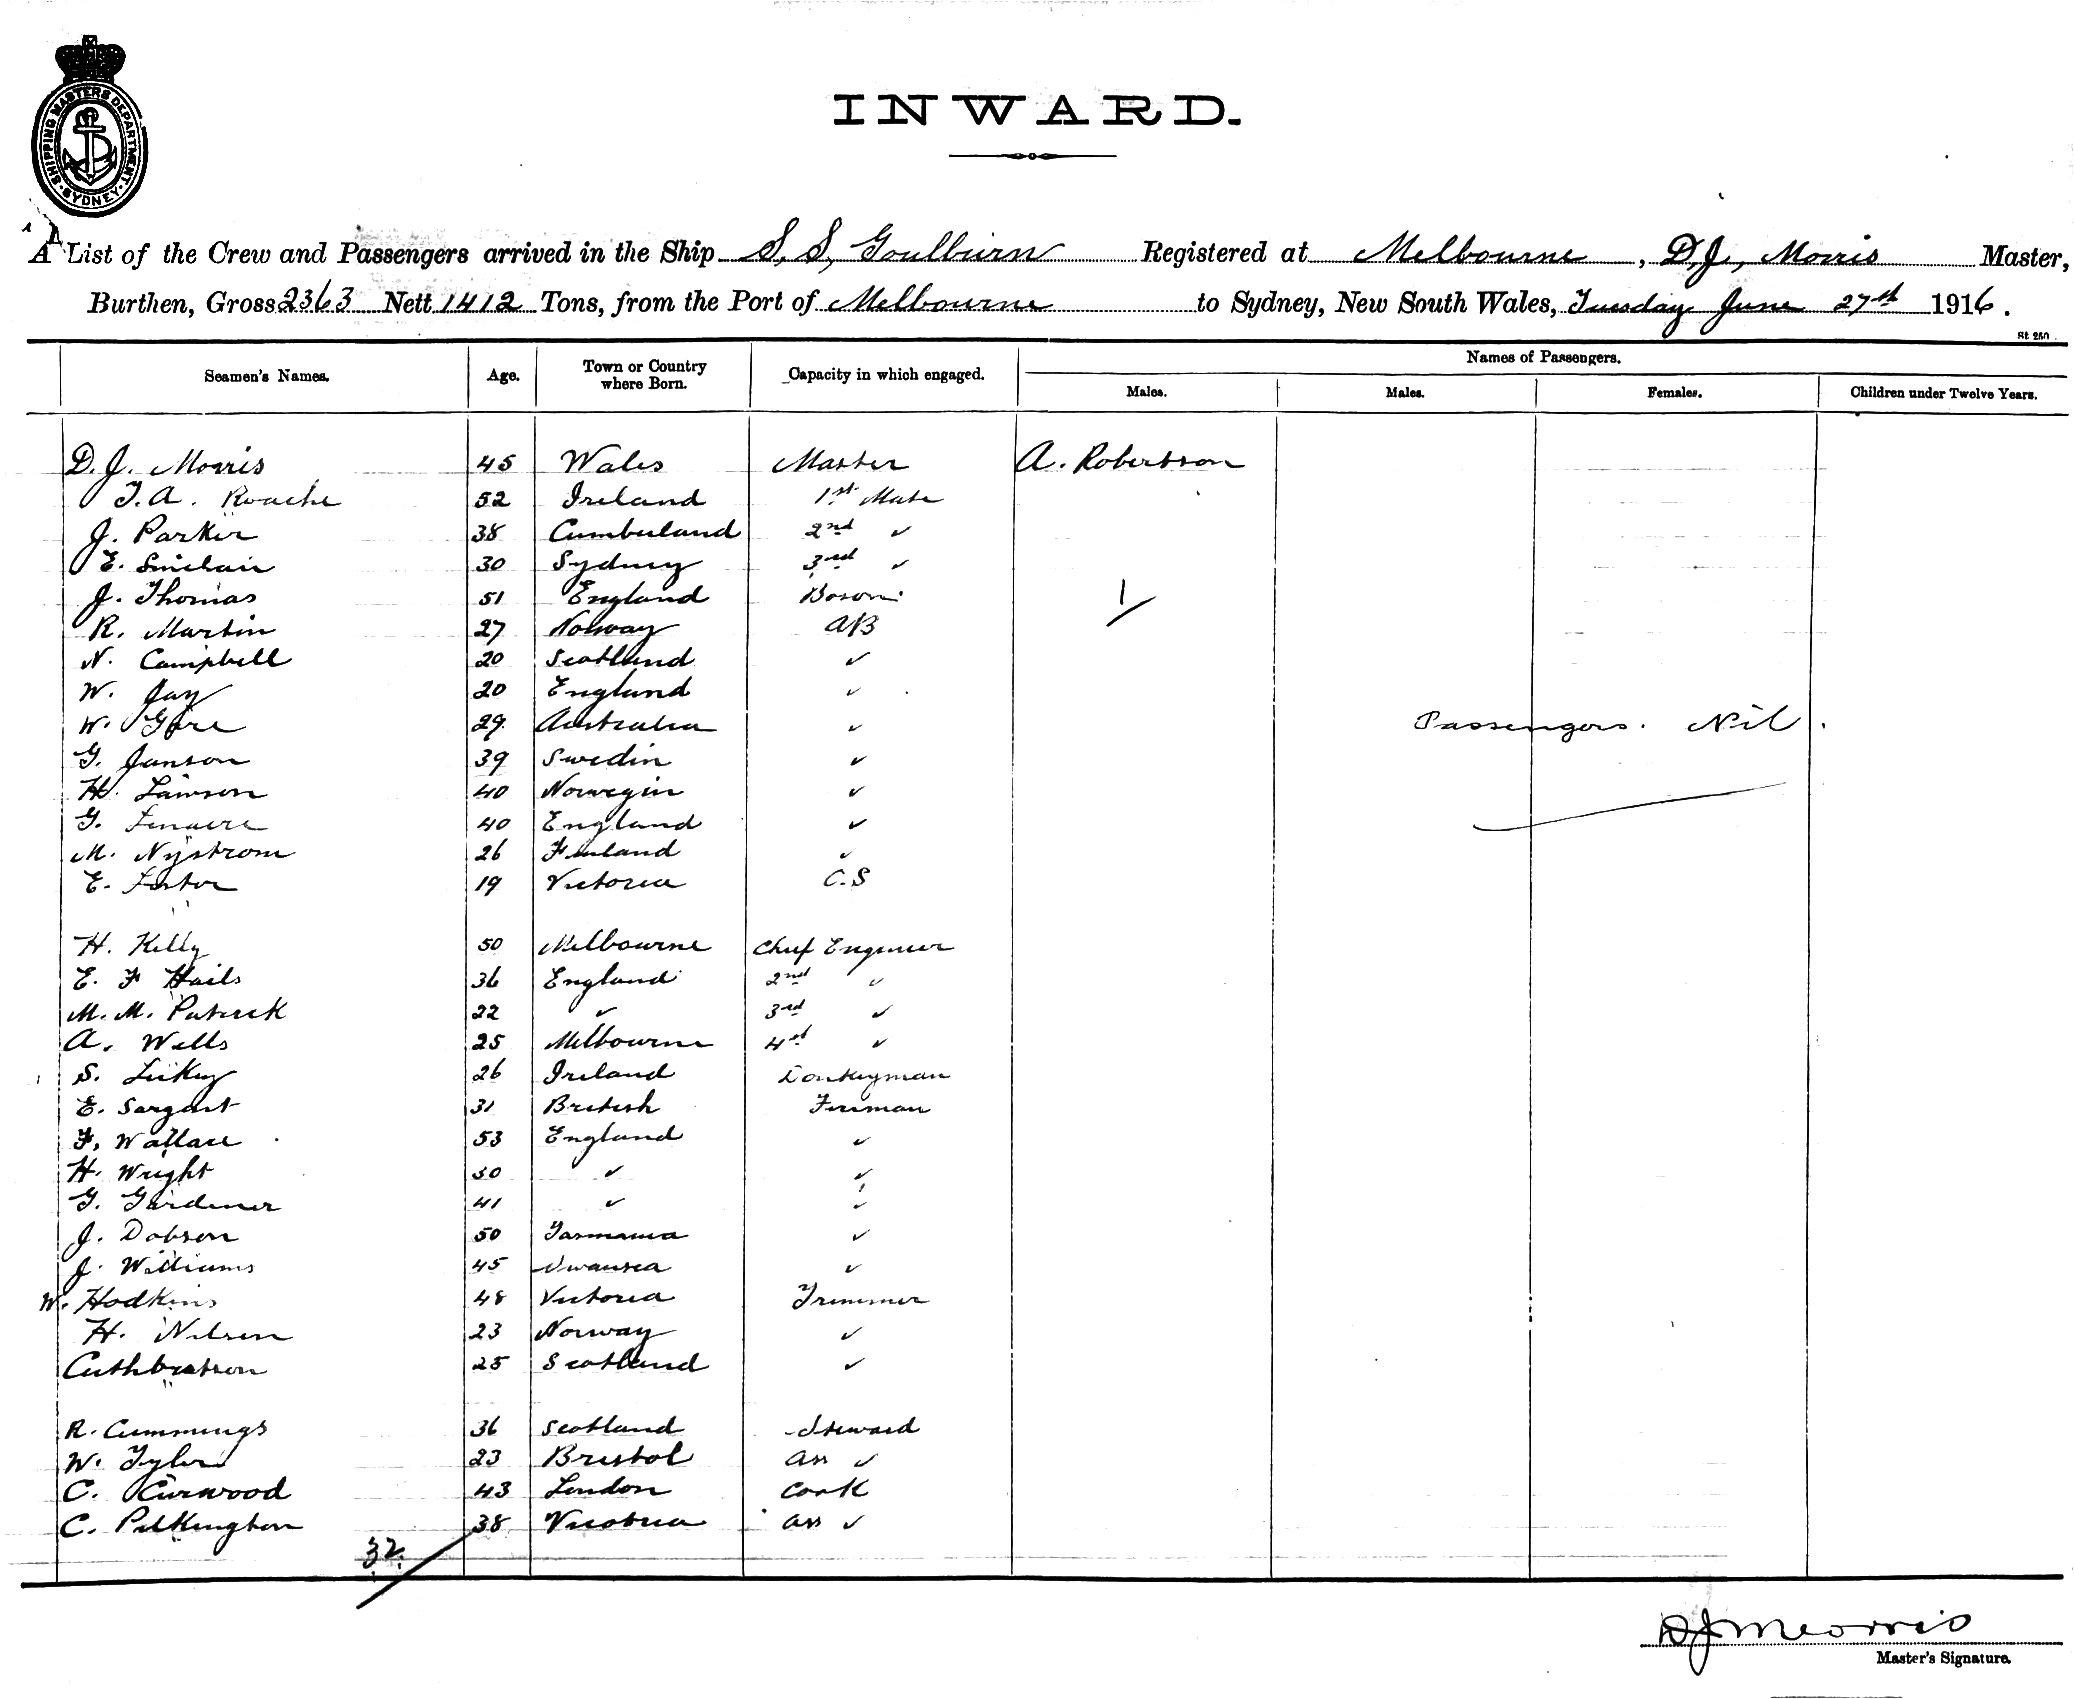 SHIPPING MASTERS DEPARTMENT · SYDNEY ·
INWARD.
A List of the Crew and Passengers arrived in the Ship S. S. Goulburn Registered at Melbourne, D. J. Morris Master,
Burthen, Gross 2363 Nett 1412 Tons, from the Port of Melbourne to Sydney, New South Wales, Tuesday June 27th 1916.
St 250
Seamen's Names. Age. Town or Country where Born. Capacity in which engaged. Names of Passengers.
Males. Males. Females. Children under Twelve Years.
D. J. Morris 45 Wales Master A. Robertson
T. A. Roache 52 Ireland 1st Mate
J. Parker 38 Cumberland 2nd ✓
E. Sinclair 30 Sydney 3rd ✓
J. Thomas 51 England Bosom 1
R. Martin 27 Norway AB
N. Campbell 20 Scotland ✓
W. Jay 20 England ✓
W. Gore 29 Australia ✓ Passengers. Nil.
G. Janson 39 Sweden ✓
H. Lawson 40 Norwegin ✓
G. 40 England ✓
M. Nystrom 26 Finland ✓
E. Foster 19 Victoria C.S
H. Kelly 50 Melbourne Chief Engineer
E. F Hails 36 England 2nd ✓
M. M. Patrick 22 ✓ 3rd ✓
A. Wells 25 Melbourne 4th ✓
S. 26 Ireland Donkeyman
E. Sargant 31 British Fireman
F. Wallace 53 England ✓
H. Wright 30 ✓ ✓
G. Gardener 41 ✓ ✓
J. Dobson 50 Tasmania ✓
J. Williams 45 Swansea ✓
W. Hodkins 48 Victoria Trimmer
H. Nilsen 23 Norway ✓
Cuthbertson 25 Scotland ✓
R. Cummings 36 Scotland Steward
W. Tyler 23 Bristol ass ✓
C. Curwood 43 London Cook
C. Pilkington 38 Victoria ass ✓
32
D J Morris
Master's Signature.